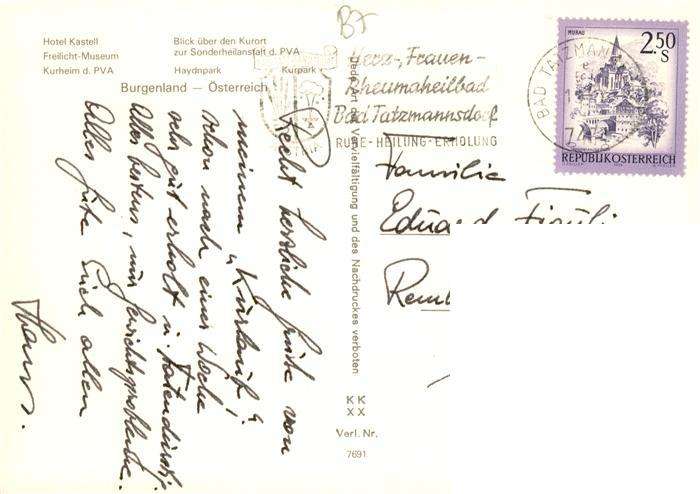 B7
Hotel Kastell
Freilicht-Museum
Kurheim d. PVA
Blick über den Kurort
zur Sonderheilanstalt d. PVA
Haydnpark Kurpark
Burgenland — Österreich
Herz-, Frauen-
Rheumaheilbad
Bad Tatzmannsdorf
RUHE - HEILUNG - ERHOLUNG
BAD TATZMANNS
MURAU
2.50
S
REPUBLIK ÖSTERREICH
Jede Art der Vervielfältigung und des Nachdruckes verboten
Recht herzliche Grüße von
meinem "Kurlaub"!
Schon nach einer Woche
sehr gut erholt u. tatendurstig.
Alles bestens, nur Gewichtsprobleme.
Alles Gute Euch allen
Hans.
Familie
Eduard
KK
XX
Verl. Nr.
7691